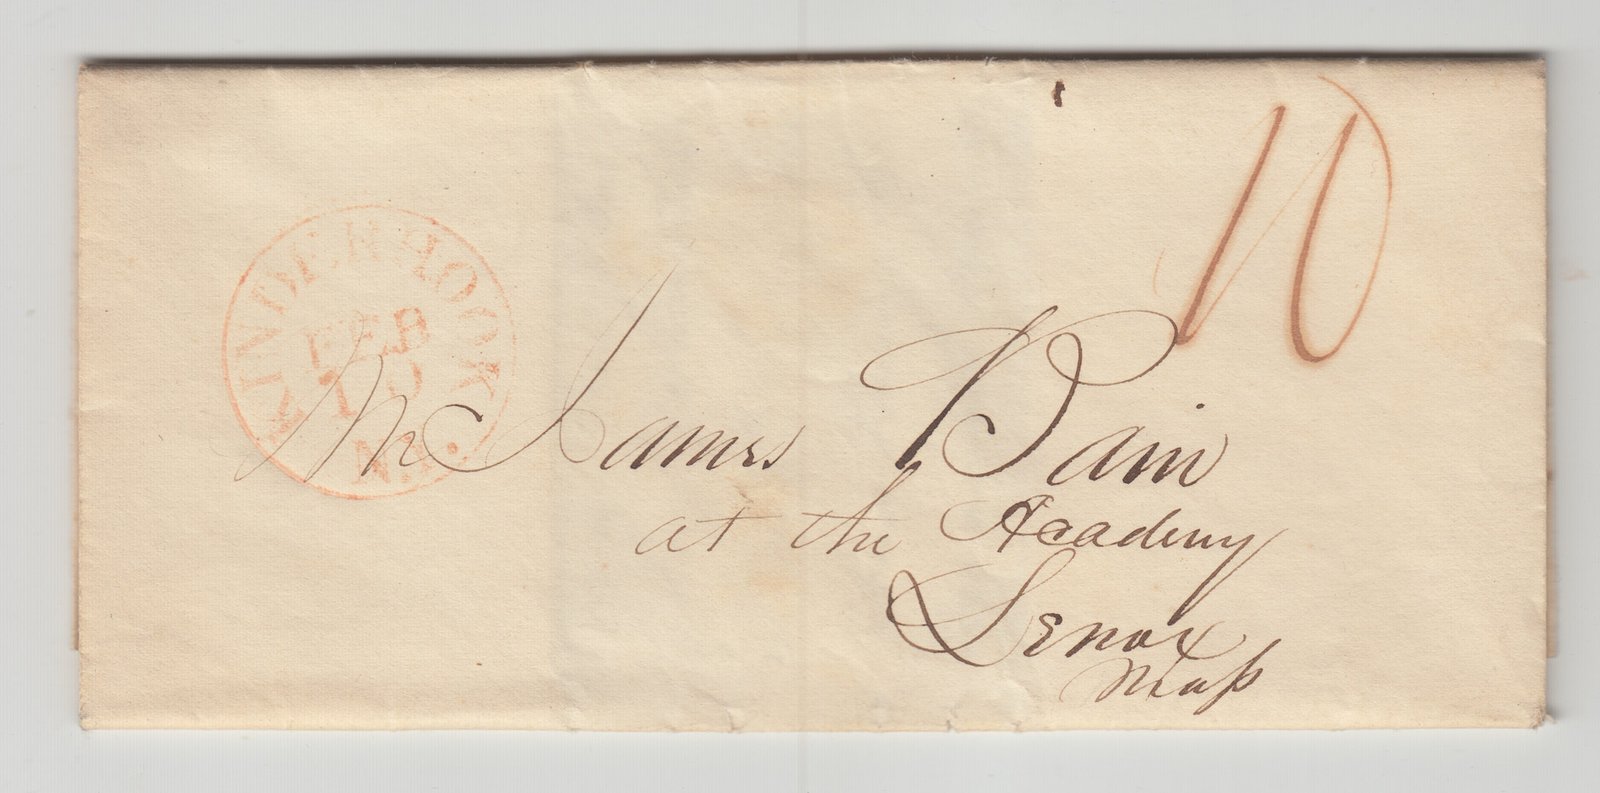 10
KINDERHOOK
FEB
10
N.Y.
Mr James Bain
at the Academy
Lenox
Mass